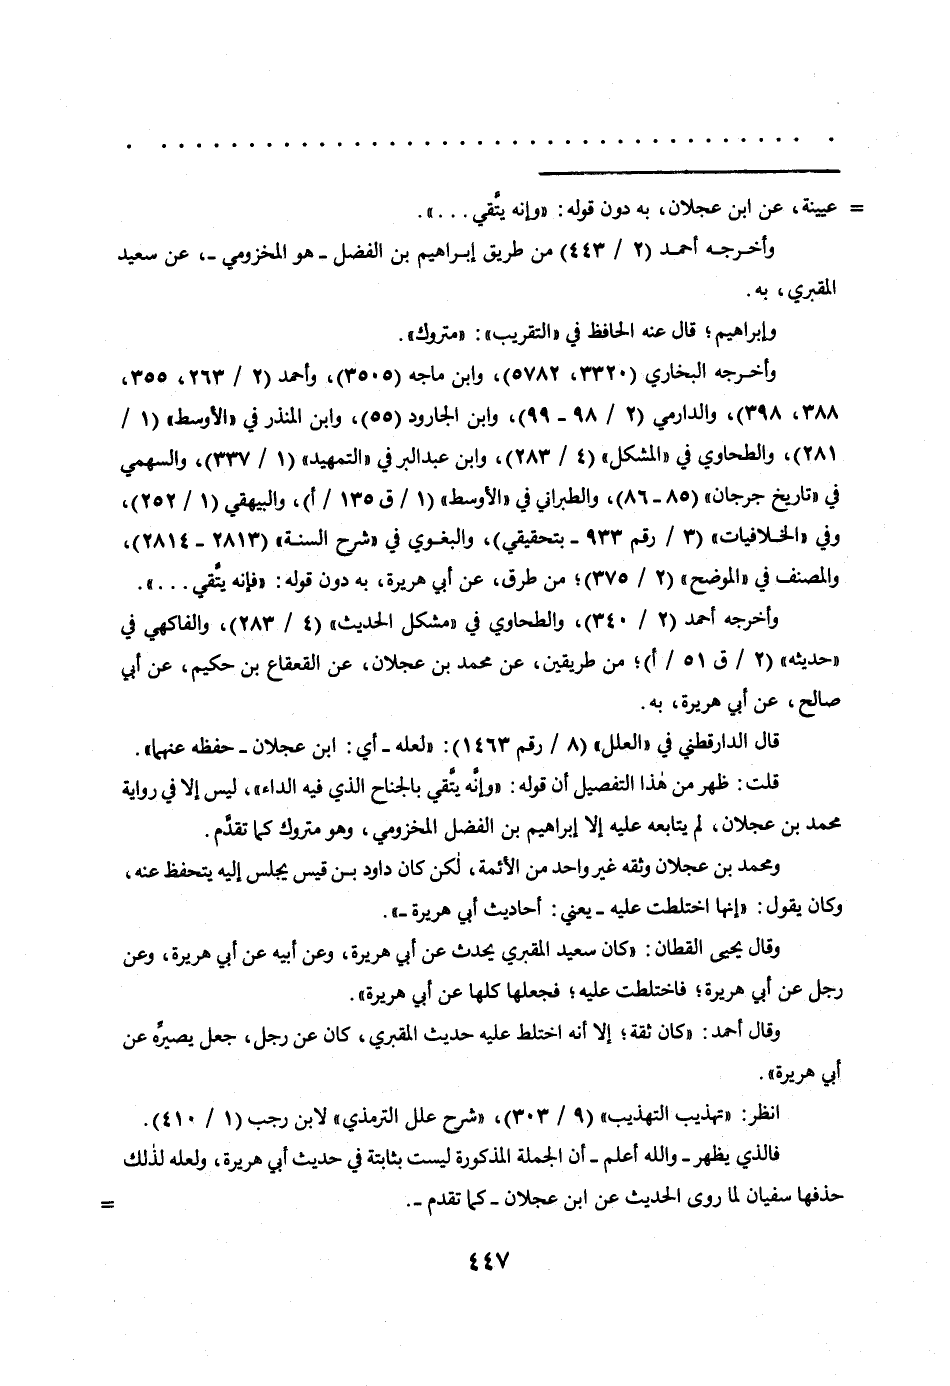 = عيينة، عن ابن عجلان، به دون قوله: «وإنه يتَّقي...».
وأخرجه أحمد (٢ / ٤٤٣) من طريق إبراهيم بن الفضل ـ هو المخزومي ـ، عن سعيد
المقبري، به.
وإبراهيم؛ قال عنه الحافظ في «التقريب»: «متروك».
وأخرجه البخاري (٣٣٢٠، ٥٧٨٢)، وابن ماجه (٣٥٠٥)، وأحمد (٢ / ٢٦٣، ٣٥٥،
٣٨٨، ٣٩٨)، والدارمي (٢ / ٩٨ ـ ٩٩)، وابن الجارود (٥٥)، وابن المنذر في «الأوسط» (١ /
٢٨١)، والطحاوي في «المشكل» (٤ / ٢٨٣)، وابن عبدالبر في «التمهيد» (١ / ٣٣٧)، والسهمي
في «تاريخ جرجان» (٨٥ ـ ٨٦)، والطبراني في «الأوسط» (١ / ق ١٣٥ / أ)، والبيهقي (١ / ٢٥٢)،
وفي «الخلافيات» (٣ / رقم ٩٣٣ ـ بتحقيقي)، والبغوي في «شرح السنة» (٢٨١٣ ـ ٢٨١٤)،
والمصنف في «الموضح» (٢ / ٣٧٥)؛ من طرق، عن أبي هريرة، به دون قوله: «فإنه يتَّقي...».
وأخرجه أحمد (٢ / ٣٤٠)، والطحاوي في «مشكل الحديث» (٤ / ٢٨٣)، والفاكهي في
«حديثه» (٢ / ق ٥١ / أ)؛ من طريقين، عن محمد بن عجلان، عن القعقاع بن حكيم، عن أبي
صالح، عن أبي هريرة، به.
قال الدارقطني في «العلل» (٨ / رقم ١٤٦٣): «لعله ـ أي: ابن عجلان ـ حفظه عنهما».
قلت: ظهر من هٰذا التفصيل أن قوله: «وإنَّه يتَّقي بالجناح الذي فيه الداء»، ليس إلا في رواية
محمد بن عجلان، لم يتابعه عليه إلا إبراهيم بن الفضل المخزومي، وهو متروك كما تقدَّم.
ومحمد بن عجلان وثقه غير واحد من الأئمة، لٰكن كان داود بن قيس يجلس إليه يتحفظ عنه،
وكان يقول: «إنها اختلطت عليه ـ يعني: أحاديث أبي هريرة ـ».
وقال يحيى القطان: «كان سعيد المقبري يحدث عن أبي هريرة، وعن أبيه عن أبي هريرة، وعن
رجل عن أبي هريرة؛ فاختلطت عليه؛ فجعلها كلها عن أبي هريرة».
وقال أحمد: «كان ثقة؛ إلا أنه اختلط عليه حديث المقبري، كان عن رجل، جعل يصيرِّه عن
أبي هريرة».
انظر: «تهذيب التهذيب» (٩ / ٣٠٣)، «شرح علل الترمذي» لابن رجب (١ / ٤١٠).
فالذي يظهر ـ والله أعلم ـ أن الجملة المذكورة ليست بثابتة في حديث أبي هريرة، ولعله لذٰلك
حذفها سفيان لما روى الحديث عن ابن عجلان ـ كما تقدم ـ. =
٤٤٧